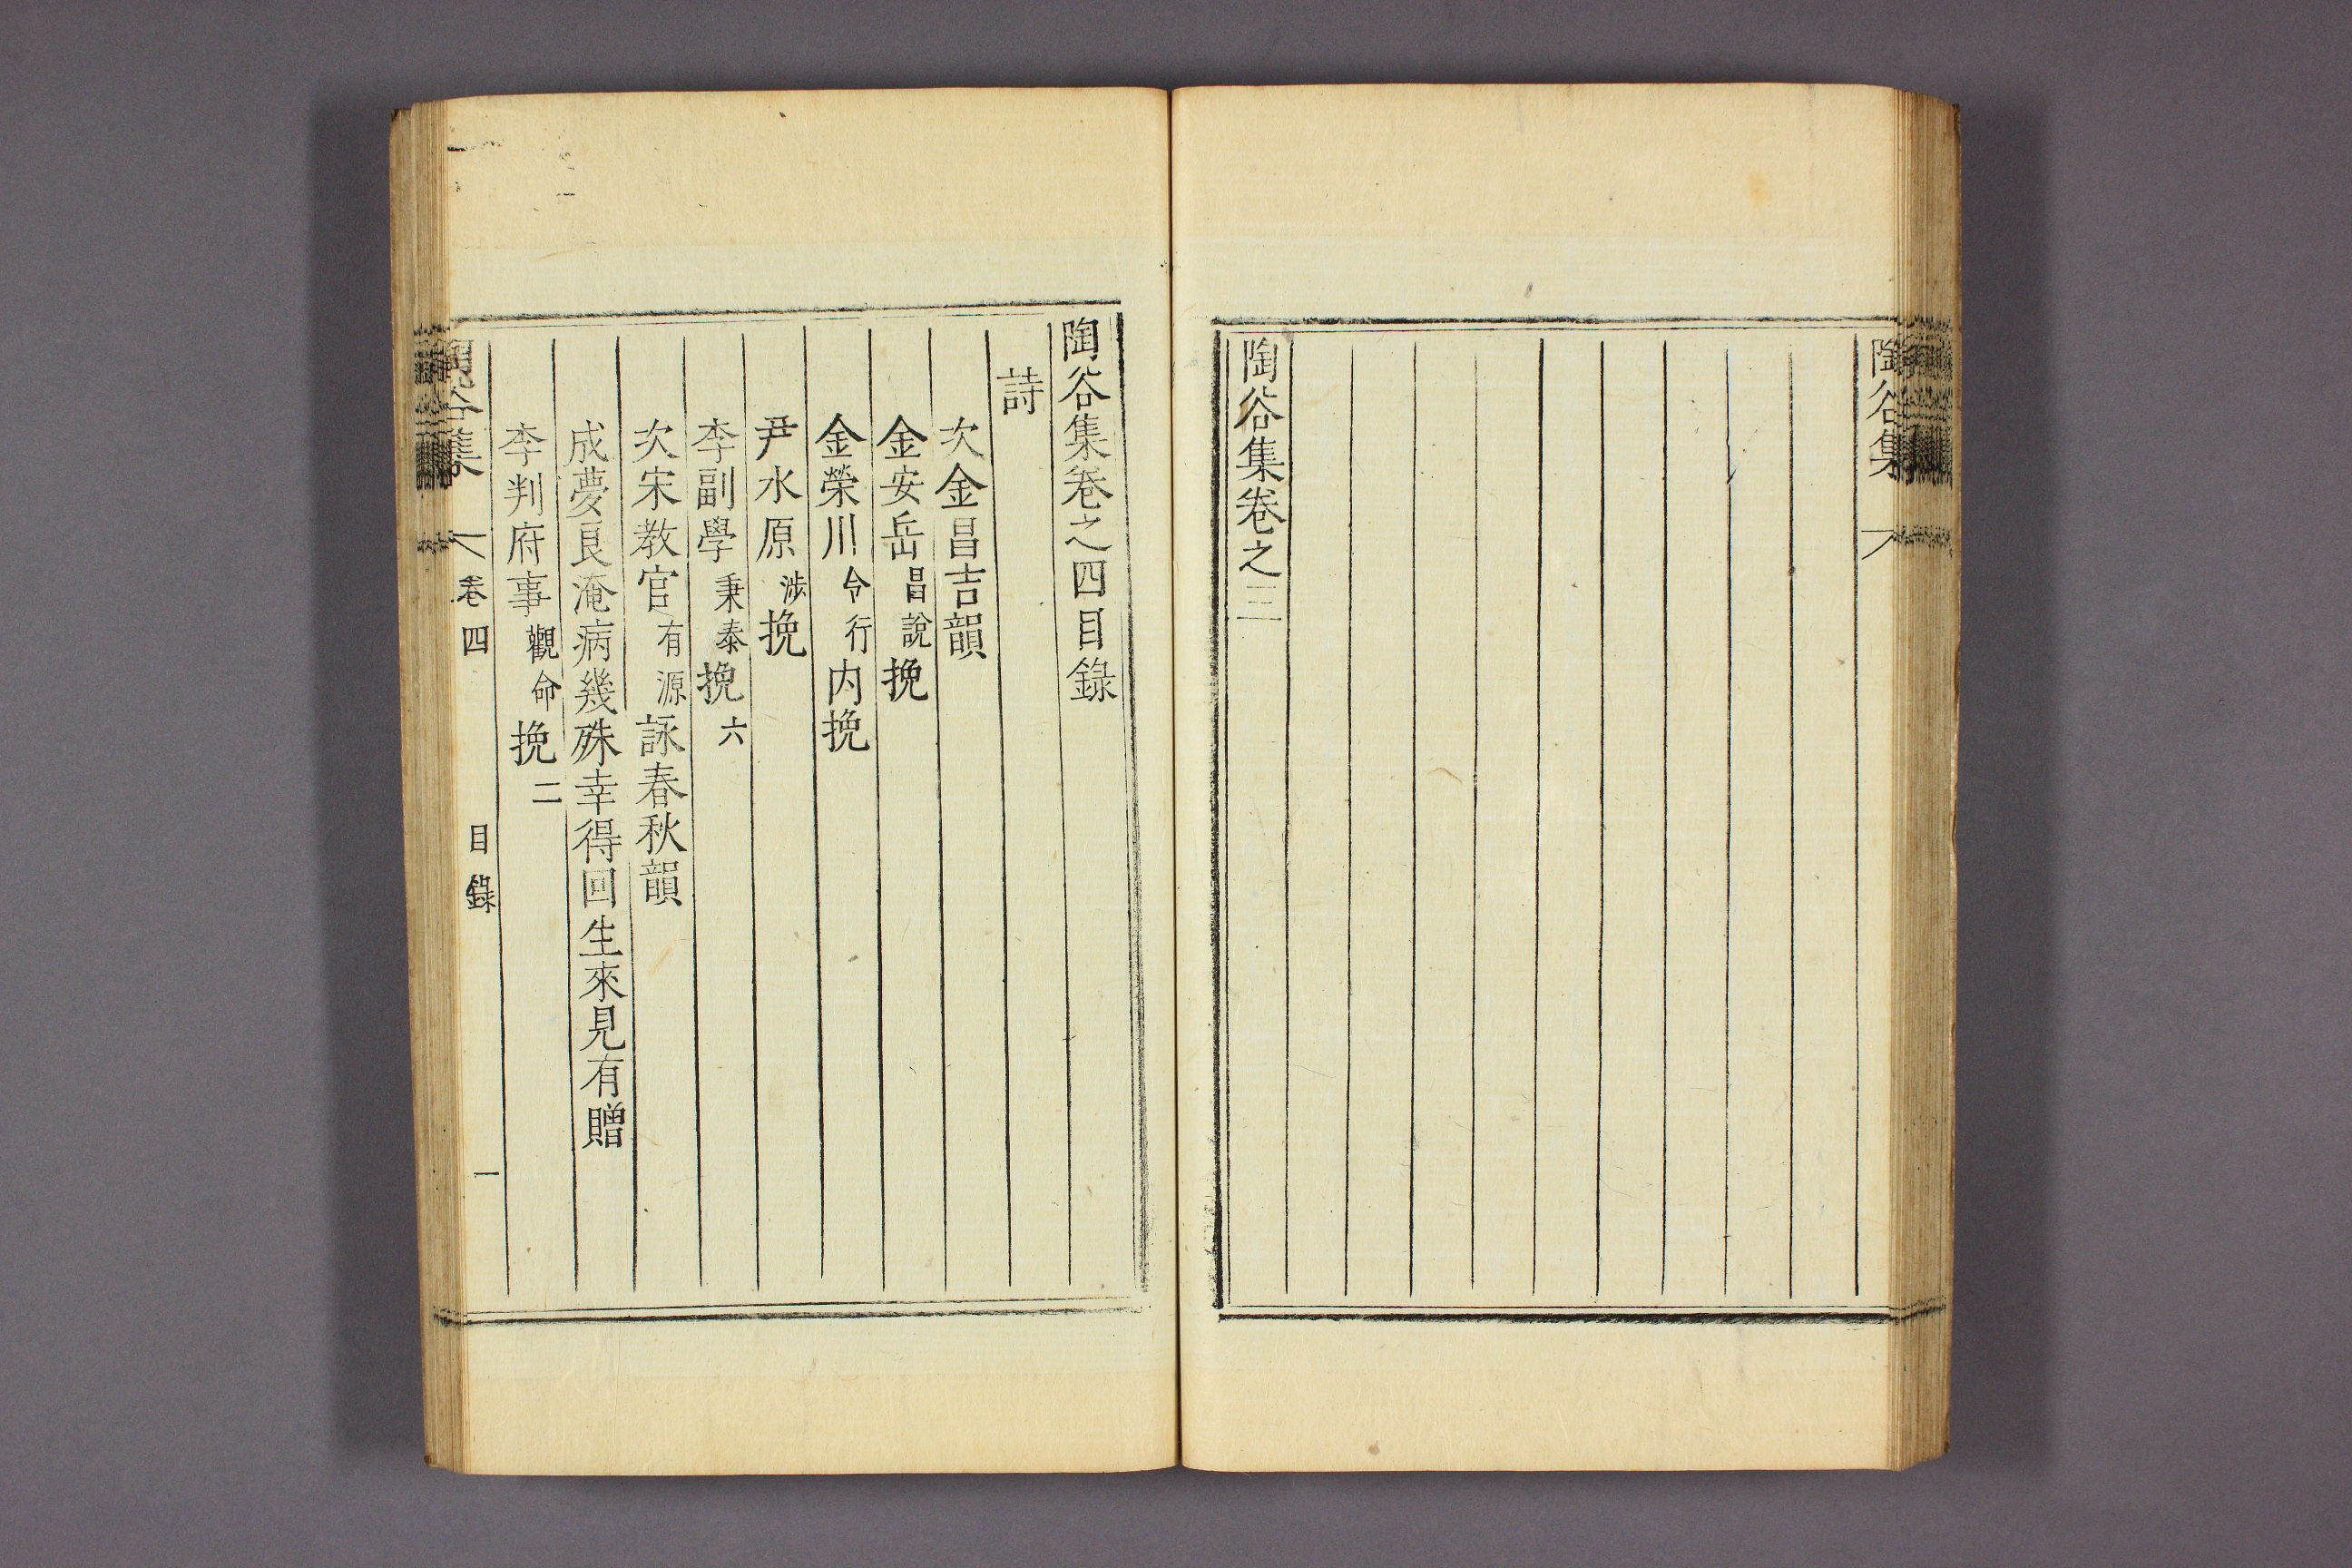 陶谷集
陶谷集卷之三
陶谷集卷之四目錄
詩
次金昌吉韻
金安岳昌說挽
金榮川令行内挽
尹水原涉挽
李副學秉泰挽六
次宋教官有源詠春秋韻
成夢良淹病幾殊幸得回生來見有贈
李判府事觀命挽二
陶谷集 卷四 目錄 一